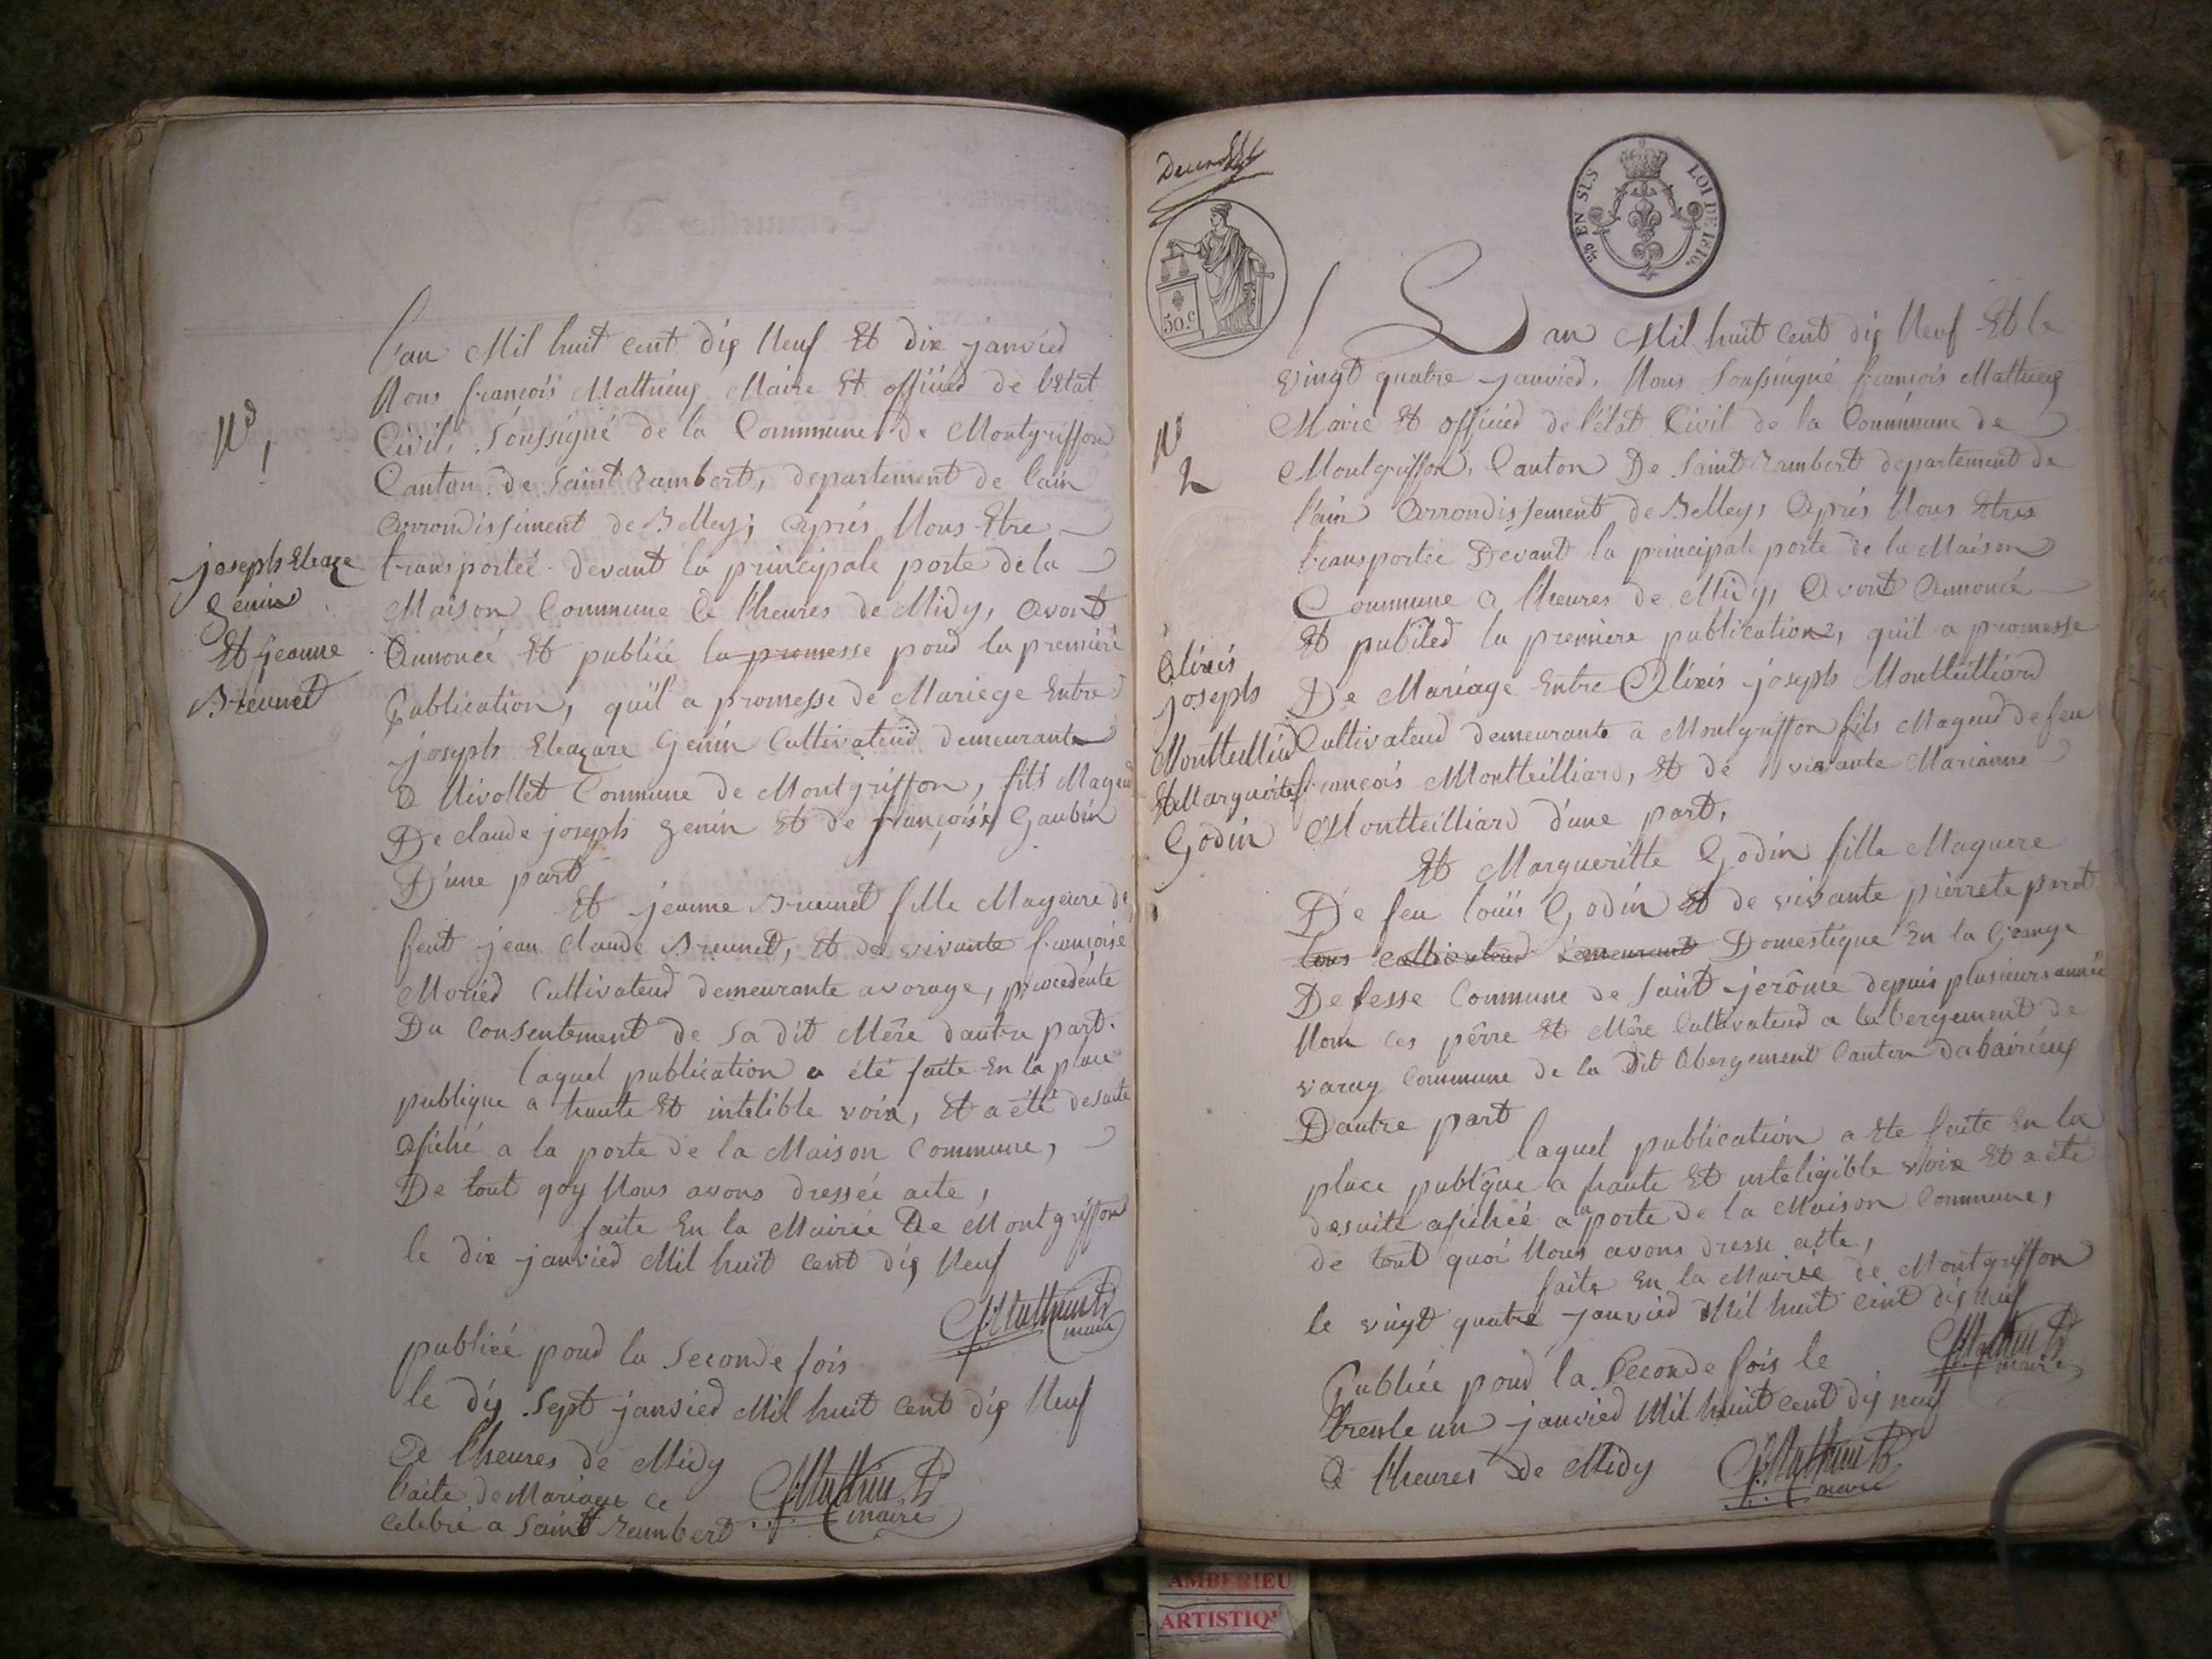 N° 1
joseph Eleaze
genin
Et jeanne
Breunet
l'an Mil huit cent dix Neuf Et dix janvied
Nous françois Mathieuy Maire Et officied de l'Etat
Civil, Soussigné de la Commmune de Montgriffon
Canton de Saint Rambert, departement de l'ain
Arrondissiment de Belley; Après Nous Etre
transportéé devant la principale porte de la
Maison Commune a l'heures de Midy, avont
Annoncé Et publiéé la promesse poud la premiere
Publication, quil a promesse de Mariege Entre
joseph Eleazare Genin Cultivateud demeurante
a Nivollet Commune de Montgriffon, fils Mageud
De claude joseph genin Et de françoise Gaubin
D'une part
Et jeanne Breunet fille Mageure de
feut jean claude Breunet, Et de vivante françoise
Moried Cultivateud demeurante avorage, procedente
Du Consentement de Sa dit Mère d'autre part.
laquel publication a été faite En la place
publique a haute Et intelible voix, Et a été desuite
afiché a la porte de la Maison Commune,
De tout qoy Nous avons dresséé acte,
faite En la Mairie De Montgriffon
le dix janvied Mil huit cent dix Neuf
maire
publiéé poud la Seconde fois
le dix Sept janvied Mil huit Cent dix Neuf
a l'heures de Midy
l'acte de Mariage ce
celebre a Saint Rambert
maire
EN SUS
LOI DE 1816.
50.c
N° 2
Alixis
joseph
Montteilliard
Et Marguerite
Godin
L'an Mil huit Cent dix Neuf Et le
vingt quatre janvied, Nous Soussingné françois Mathieuy
Maire Et officied de l'état Civil de la Commmune de
Montgriffon, Canton De Saint Rambert departement de
l'ain Arrondissement de Belley, Après Nous Etres
transportéé Devant la principale porte de la Maison
Commune a l'heures de Midy, Avont Annoncé
Et publied la premiere publication, quil a promesse
De Mariage Entre Alixis joseph Montteilliard
Cultivateud demeurante a Montgriffon fils Mageud de feu
françois Montteilliard, Et de vivante Marianne
Montteilliard d'une part,
Et Margueritte Godin fille Maguere
De feu louis Godin Et de vivante pierrete perot
tous Cultivateud demeurant Domestique En la Grange
De fesse Commune de Saint jerôme depuis plusieurs année
Nom ces pêrre Et Mêre Cultivateud a labergement de
varey Commune de la Dit Abergement Canton
Dautre part
laquel publication a Ete faite En la
place publique a haute Et inteligible voix Et a été
desuite afichéé a la porte de la Maison Commune,
de tout quoi Nous avons dresse atte,
faite En la Mairie de Montgriffon
le vingt quatre janvied Mil huit Cent dix Neuf
maire
Publiéé poud la Seconde fois le
trente un janvied Mil huit cent dix neuf
a l'heures de Midy
maire
AMBERIEU
ARTISTIQ